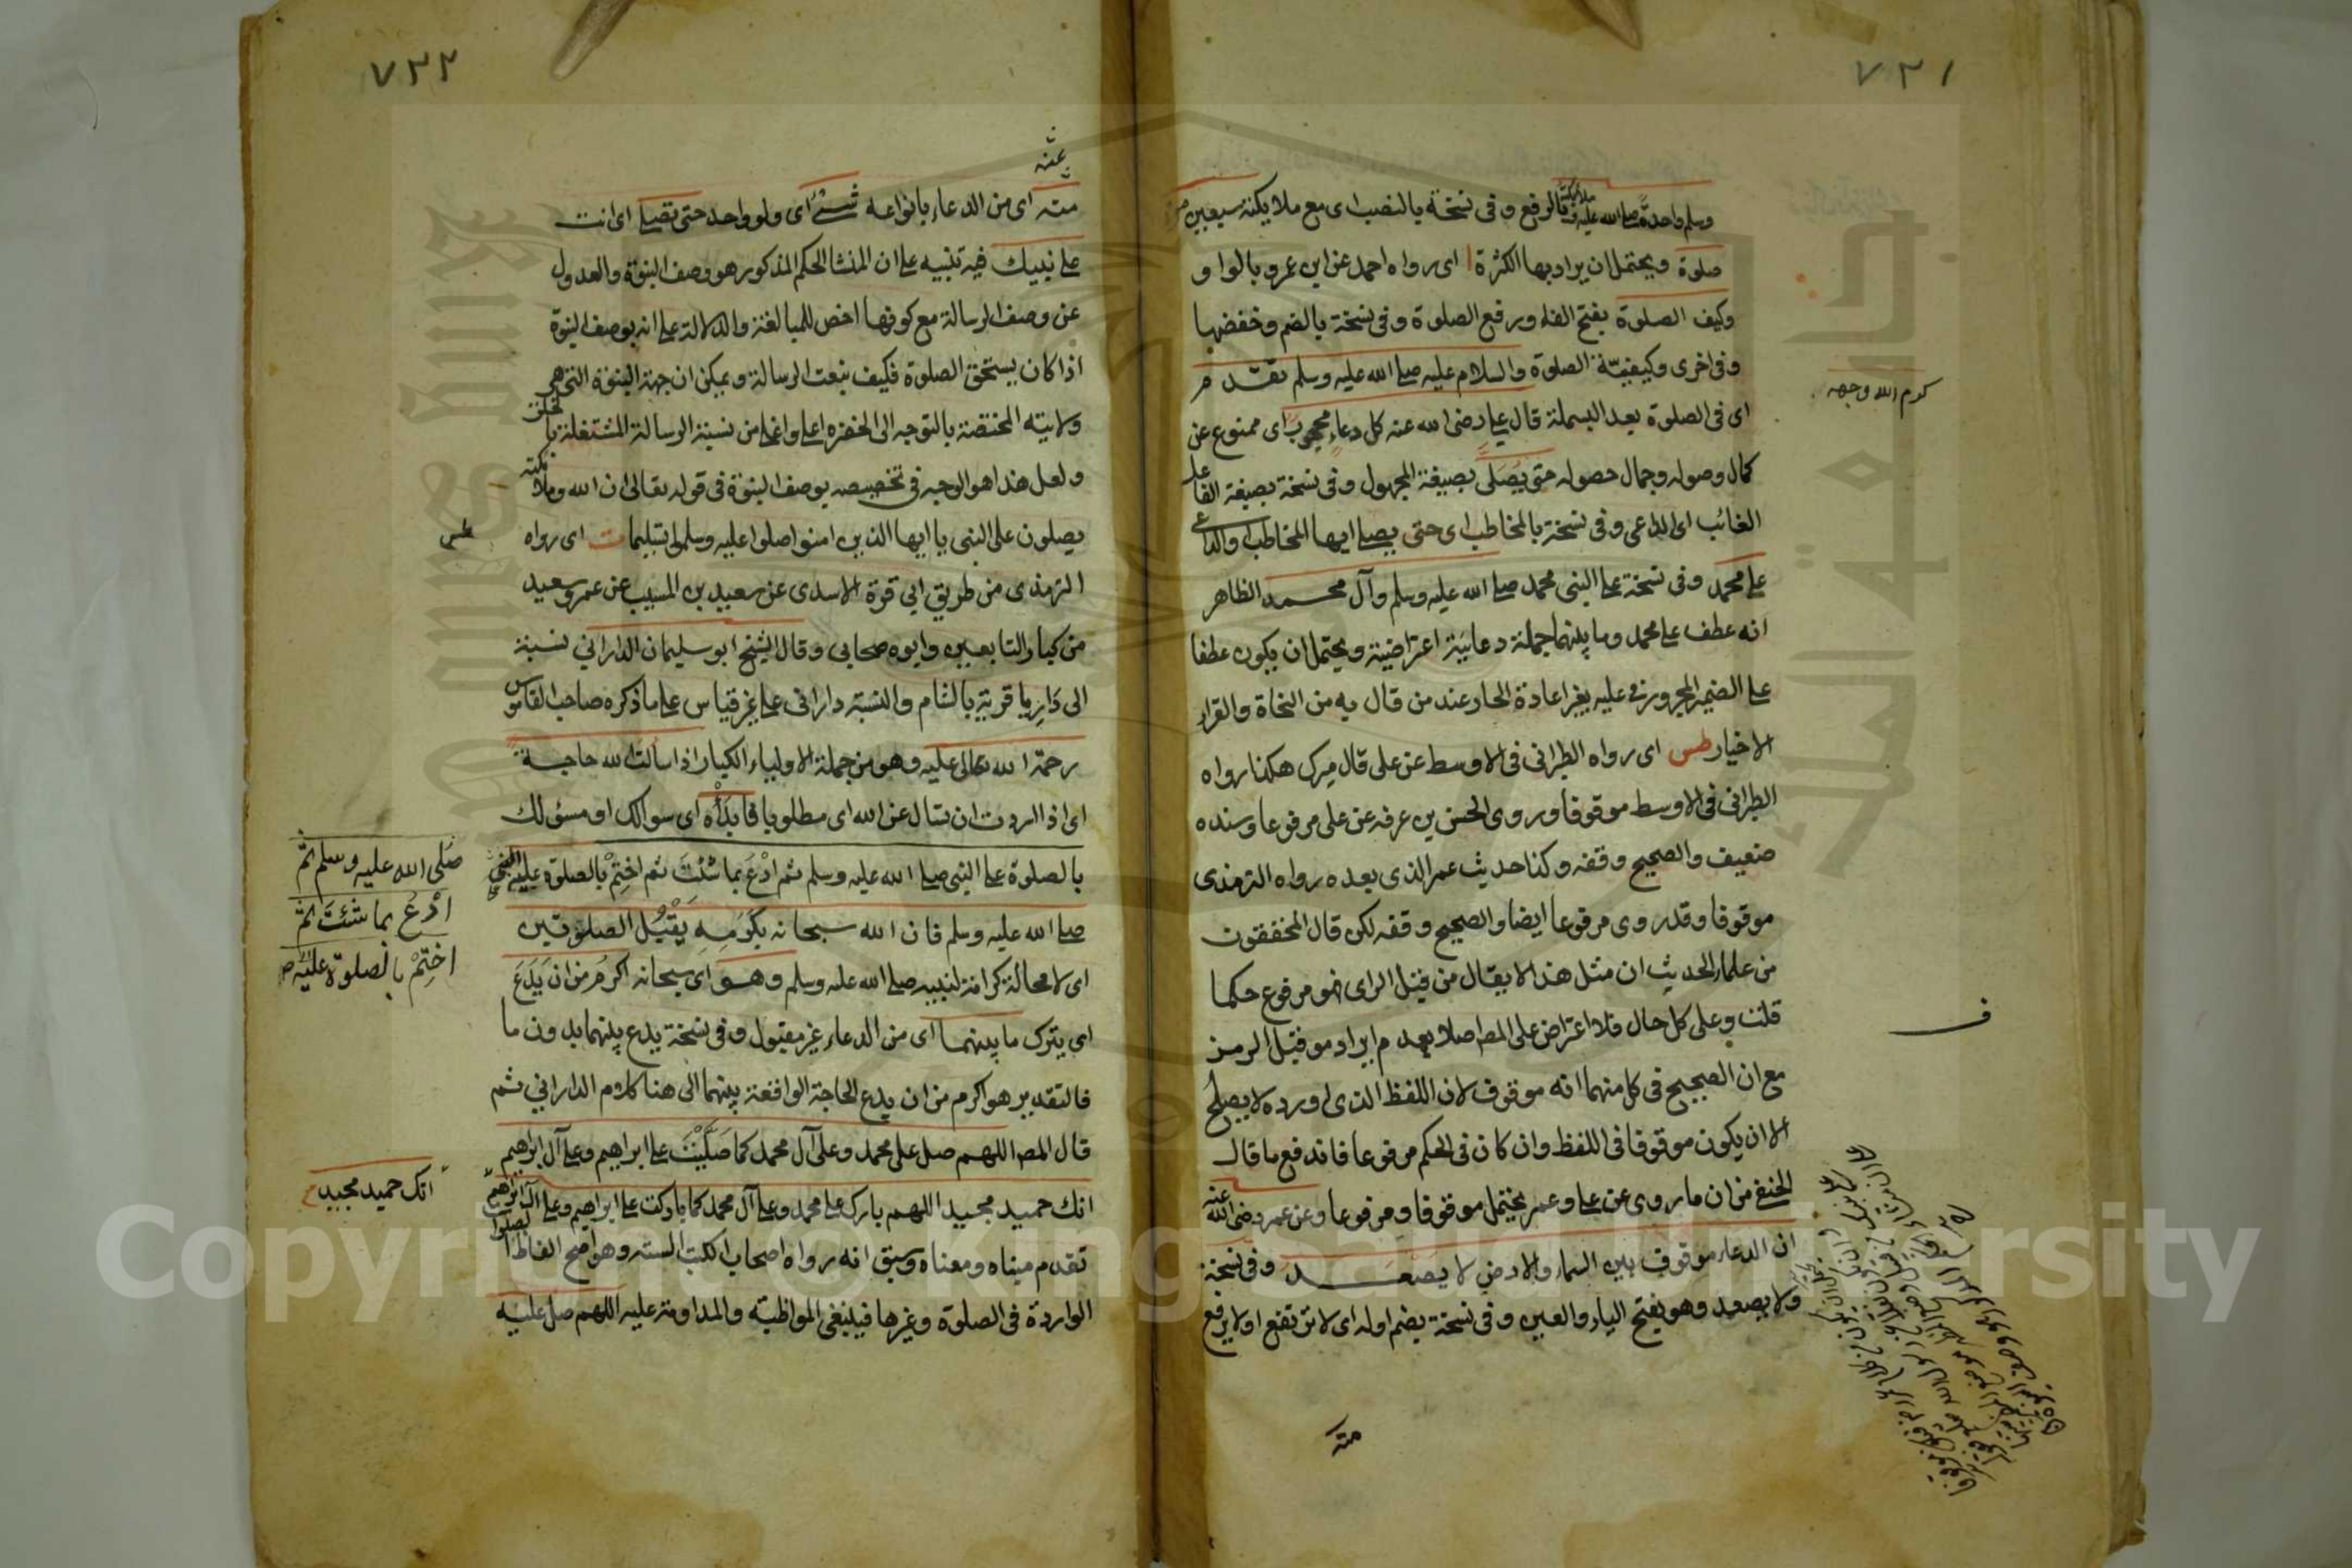 ٧٣١
وسلم واحدة صلى الله عليه وملائكته بالرفع وفى نسخة بالنصب اى مع ملايكته سبعين
صلوة ويحتمل ان يراد بها الكثرة ا اى رواه احمد عن ابن عمرو بالواو
وكيف الصلوة بفتح الفاء ورفع الصلوة وفى نسخة بالضم وخفضها
وفى اخرى وكيفيّة الصلوة والسلام عليه صلى الله عليه وسلم تقدم
كرم الله وجهه
اى فى الصلوة بعد البسملة قال على رضى الله عنه كل دعاء محجوب اى ممنوع عن
كمال وصوله وجمال حصوله حتى يُصَلى بصيغة المجهول وفى نسخة بصيغة الفاعل
الغائب اى الداعى وفى نسخة بالمخاطب اى حتى يصلى ايها المخاطب والداعى
على محمد وفى نسخة على النبى محمد صلى الله عليه وسلم وآل محمد الظاهر
انه عطف على محمد وما بينهما جملة دعائية اعتراضية ويحتمل ان يكون عطفا
على الضمير المجرور فى عليه بغير اعادة الجار عند من قال به من النحاة والقراء
الاخيار طس اى رواه الطبرانى فى الاوسط عن على قال ميرك هكذا رواه
الطبرانى فى الاوسط موقوفا وروى الحسن بن عرفه عن على مرفوعا وسنده
ضعيف والصحيح وقفه وكذا حديث عمر الذى بعده رواه الترمذى
موقوفا وقد روى مرفوعا ايضا والصحيح وقفه لكن قال المحققون
من علماء الحديث ان مثل هذا لا يقال من قبل الراى فهو مرفوع حكما
قلت وعلى كل حال فلا اعتراض على المص اصلا بعدم ايراد مو قبل الرمز
مع ان الصحيح فى كل منهما انه موقوف لان اللفظ الذى اورده لا يصلح
الا ان يكون موقوفا فى اللفظ وان كان فى الحكم مرفوعا فاندفع ما قال
الحنفى من ان ما روى عن على وعمر يحتمل موقوفا ومرفوعا وعن عمر رضى الله عنه
ان الدعاء موقوف بين السماء والارض لا يصعد وفى نسخة
ولا يصعد وهو بفتح الياء والعين وفى نسخة بضم اوله اى لا ترتفع او لا يرفع
منه
٧٣٢
منه اى من الدعاء بانواعه شئ اى ولو واحد حتى تصلى اى انت
على نبيك فيه تنبيه على ان المنشا الحكم المذكور هو وصف النبوة والعدول
عن وصف الرسالة مع كونها اخص للمبالغة والدلالة على انه بوصف النبوة
اذا كان يستحق الصلوة فكيف بنعت الرسالة ويمكن ان جهة النبوة التى هى
ولايته المختصة بالتوجه الى الحضرة اعلى واغلى من نسبة الرسالة المشتغلة بالخلق
ولعل هذا هو الوجه فى تخصيصه بوصف النبوة فى قوله تعالى ان الله وملائكته
يصلون على النبى يا ايها الذين امنوا صلوا عليه وسلموا تسليما ت اى رواه
الترمذى من طريق ابي قرة الاسدى عن سعيد بن المسيب عن عمر وسعيد
من كبار التابعين وابوه صحابى وقال الشيخ ابو سليمان الدارانى نسبة
الى دَارِيا قرية بالشام والنسبة دارانى على غير قياس على ما ذكره صاحب القاموس
رحمة الله تعالى عليه وهو من جملة الاولياء الكبار اذا سألت الله حاجة
اى اذا اردت ان تسال عن الله اى مطلوبا فابدَأْه اى سوالك او مسئولك
بالصلوة على النبى صلى الله عليه وسلم ثم ادْعَ بما شئت ثم اختِمْ بالصلوة عليه
صلى الله عليه وسلم ثم
ادْعَ بما شئتَ ثم
اختِمْ بالصلوة عليه
صلى الله عليه وسلم فان الله سبحانه بِكَرَمِه يَقْبَل الصلوتين
اى لا محالة كرامة لنبيه صلى الله عليه وسلم وهو اى سبحانه اكرم من ان يَدَعَ
اى يترك ما بينهما اى من الدعاء غير مقبول وفى نسخة يدع بينهما بدون ما
فالتقدير هو اكرم من ان يدع الحاجة الواقعة بينهما الى هنا كلام الدارانى ثم
قال المص اللهم صل على محمد وعلى آل محمد كما صَلَّيْتَ على ابراهيم وعلى آل ابراهيم
انك حميد مجيد
انك حميد مجيد اللهم بارك على محمد وعلى آل محمد كما باركت على ابراهيم وعلى آل ابراهيم
تقدم مبناه ومعناه وسبق انه رواه اصحاب الكتب الستة وهو اصح الفاظ الصلوة
الواردة فى الصلوة وغيرها فينبغى المواظبة والمداومة عليه اللهم صل عليه
Copyright © King Saud University